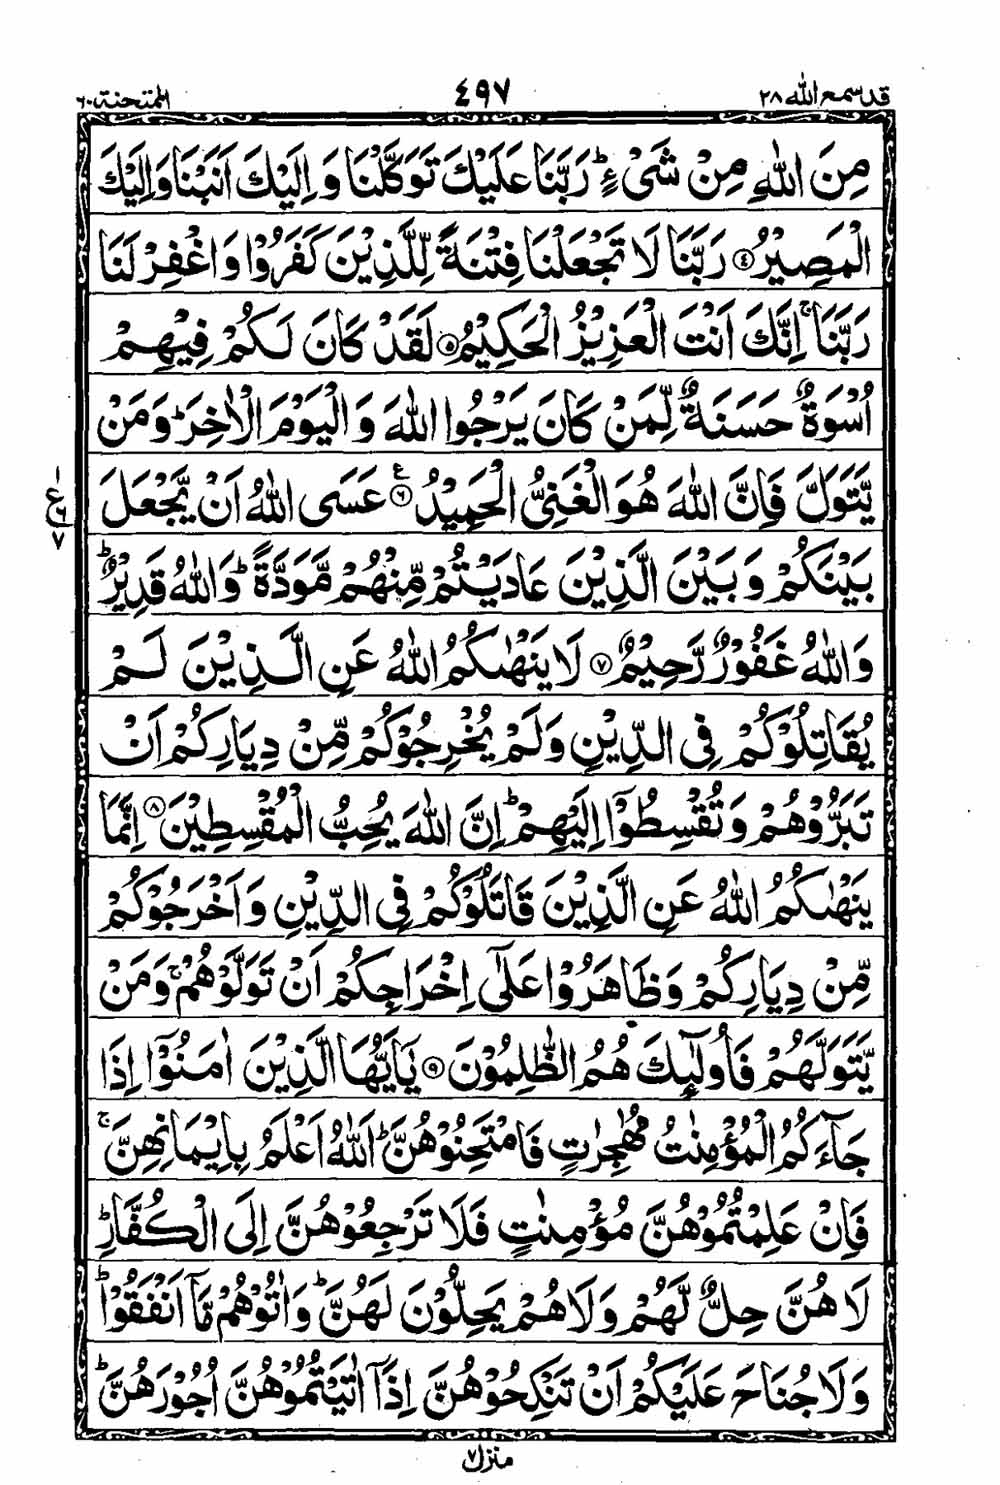 قد سمع الله ٢٨
٤٩٧
الممتحنة ٦٠
مِنَ اللّٰهِ مِنْ شَیْءٍ ؕ رَبَّنَا عَلَیْكَ تَوَكَّلْنَا وَ اِلَیْكَ اَنَبْنَا وَ اِلَیْكَ
الْمَصِیْرُ ﴿۴﴾ رَبَّنَا لَا تَجْعَلْنَا فِتْنَةً لِّلَّذِیْنَ كَفَرُوْا وَ اغْفِرْ لَنَا
رَبَّنَا ۚ اِنَّكَ اَنْتَ الْعَزِیْزُ الْحَكِیْمُ ﴿۵﴾ لَقَدْ كَانَ لَكُمْ فِیْهِمْ
اُسْوَةٌ حَسَنَةٌ لِّمَنْ كَانَ یَرْجُوا اللّٰهَ وَ الْیَوْمَ الْاٰخِرَ ؕ وَ مَنْ
یَّتَوَلَّ فَاِنَّ اللّٰهَ هُوَ الْغَنِیُّ الْحَمِیْدُ ﴿۶﴾ ع عَسَی اللّٰهُ اَنْ یَّجْعَلَ
بَیْنَكُمْ وَ بَیْنَ الَّذِیْنَ عَادَیْتُمْ مِّنْهُمْ مَّوَدَّةً ؕ وَ اللّٰهُ قَدِیْرٌ ؕ
وَ اللّٰهُ غَفُوْرٌ رَّحِیْمٌ ﴿۷﴾ لَا یَنْهٰىكُمُ اللّٰهُ عَنِ الَّذِیْنَ لَمْ
یُقَاتِلُوْكُمْ فِی الدِّیْنِ وَ لَمْ یُخْرِجُوْكُمْ مِّنْ دِیَارِكُمْ اَنْ
تَبَرُّوْهُمْ وَ تُقْسِطُوْۤا اِلَیْهِمْ ؕ اِنَّ اللّٰهَ یُحِبُّ الْمُقْسِطِیْنَ ﴿۸﴾ اِنَّمَا
یَنْهٰىكُمُ اللّٰهُ عَنِ الَّذِیْنَ قَاتَلُوْكُمْ فِی الدِّیْنِ وَ اَخْرَجُوْكُمْ
مِّنْ دِیَارِكُمْ وَ ظَاهَرُوْا عَلٰۤی اِخْرَاجِكُمْ اَنْ تَوَلَّوْهُمْ ۚ وَ مَنْ
یَّتَوَلَّهُمْ فَاُولٰٓىِٕكَ هُمُ الظّٰلِمُوْنَ ﴿۹﴾ یٰۤاَیُّهَا الَّذِیْنَ اٰمَنُوْۤا اِذَا
جَآءَكُمُ الْمُؤْمِنٰتُ مُهٰجِرٰتٍ فَامْتَحِنُوْهُنَّ ؕ اَللّٰهُ اَعْلَمُ بِاِیْمَانِهِنَّ ۚ
فَاِنْ عَلِمْتُمُوْهُنَّ مُؤْمِنٰتٍ فَلَا تَرْجِعُوْهُنَّ اِلَی الْكُفَّارِ ؕ
لَا هُنَّ حِلٌّ لَّهُمْ وَ لَا هُمْ یَحِلُّوْنَ لَهُنَّ ؕ وَ اٰتُوْهُمْ مَّاۤ اَنْفَقُوْا ؕ
وَ لَا جُنَاحَ عَلَیْكُمْ اَنْ تَنْكِحُوْهُنَّ اِذَاۤ اٰتَیْتُمُوْهُنَّ اُجُوْرَهُنَّ ؕ
ع
٧
منزل ٧